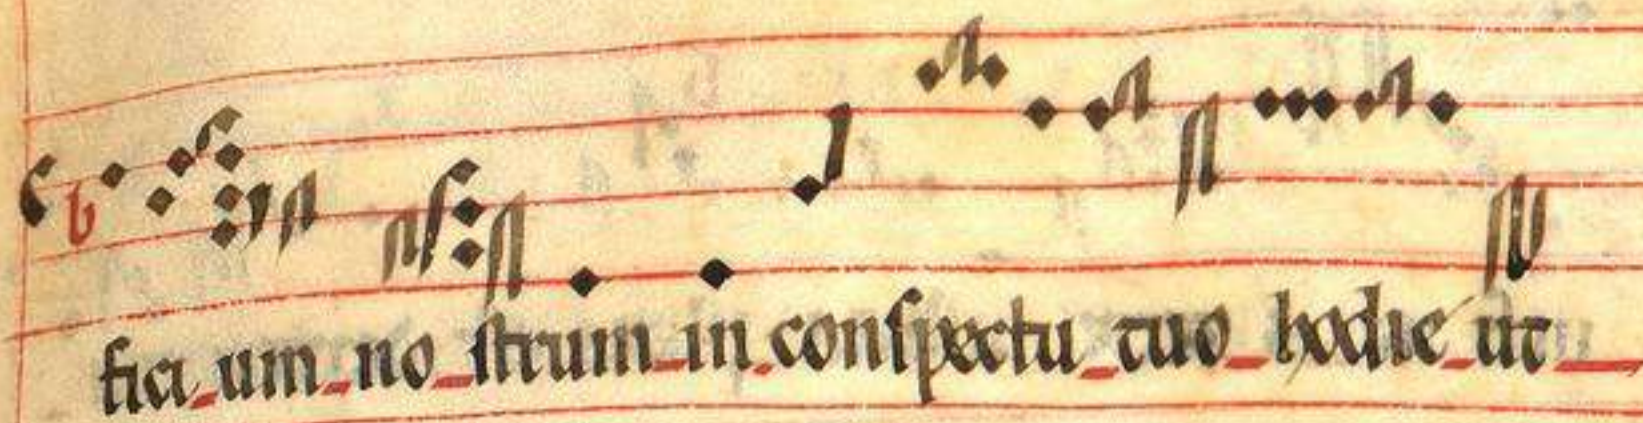 fici um no strum in conspectu tuo hodie ut